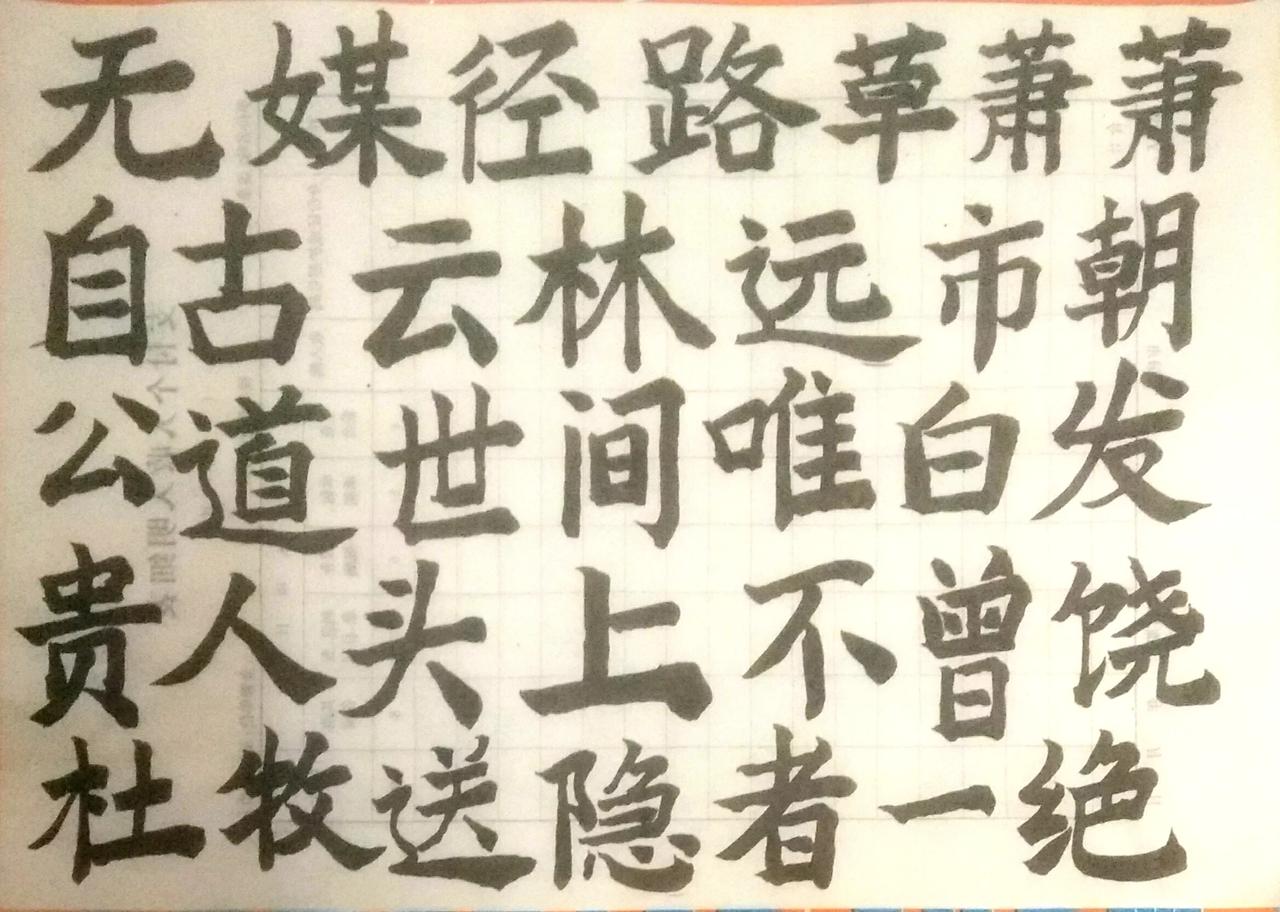 无媒径路草萧萧
自古云林远市朝
公道世间唯白发
贵人头上不曾饶
杜牧送隐者一绝